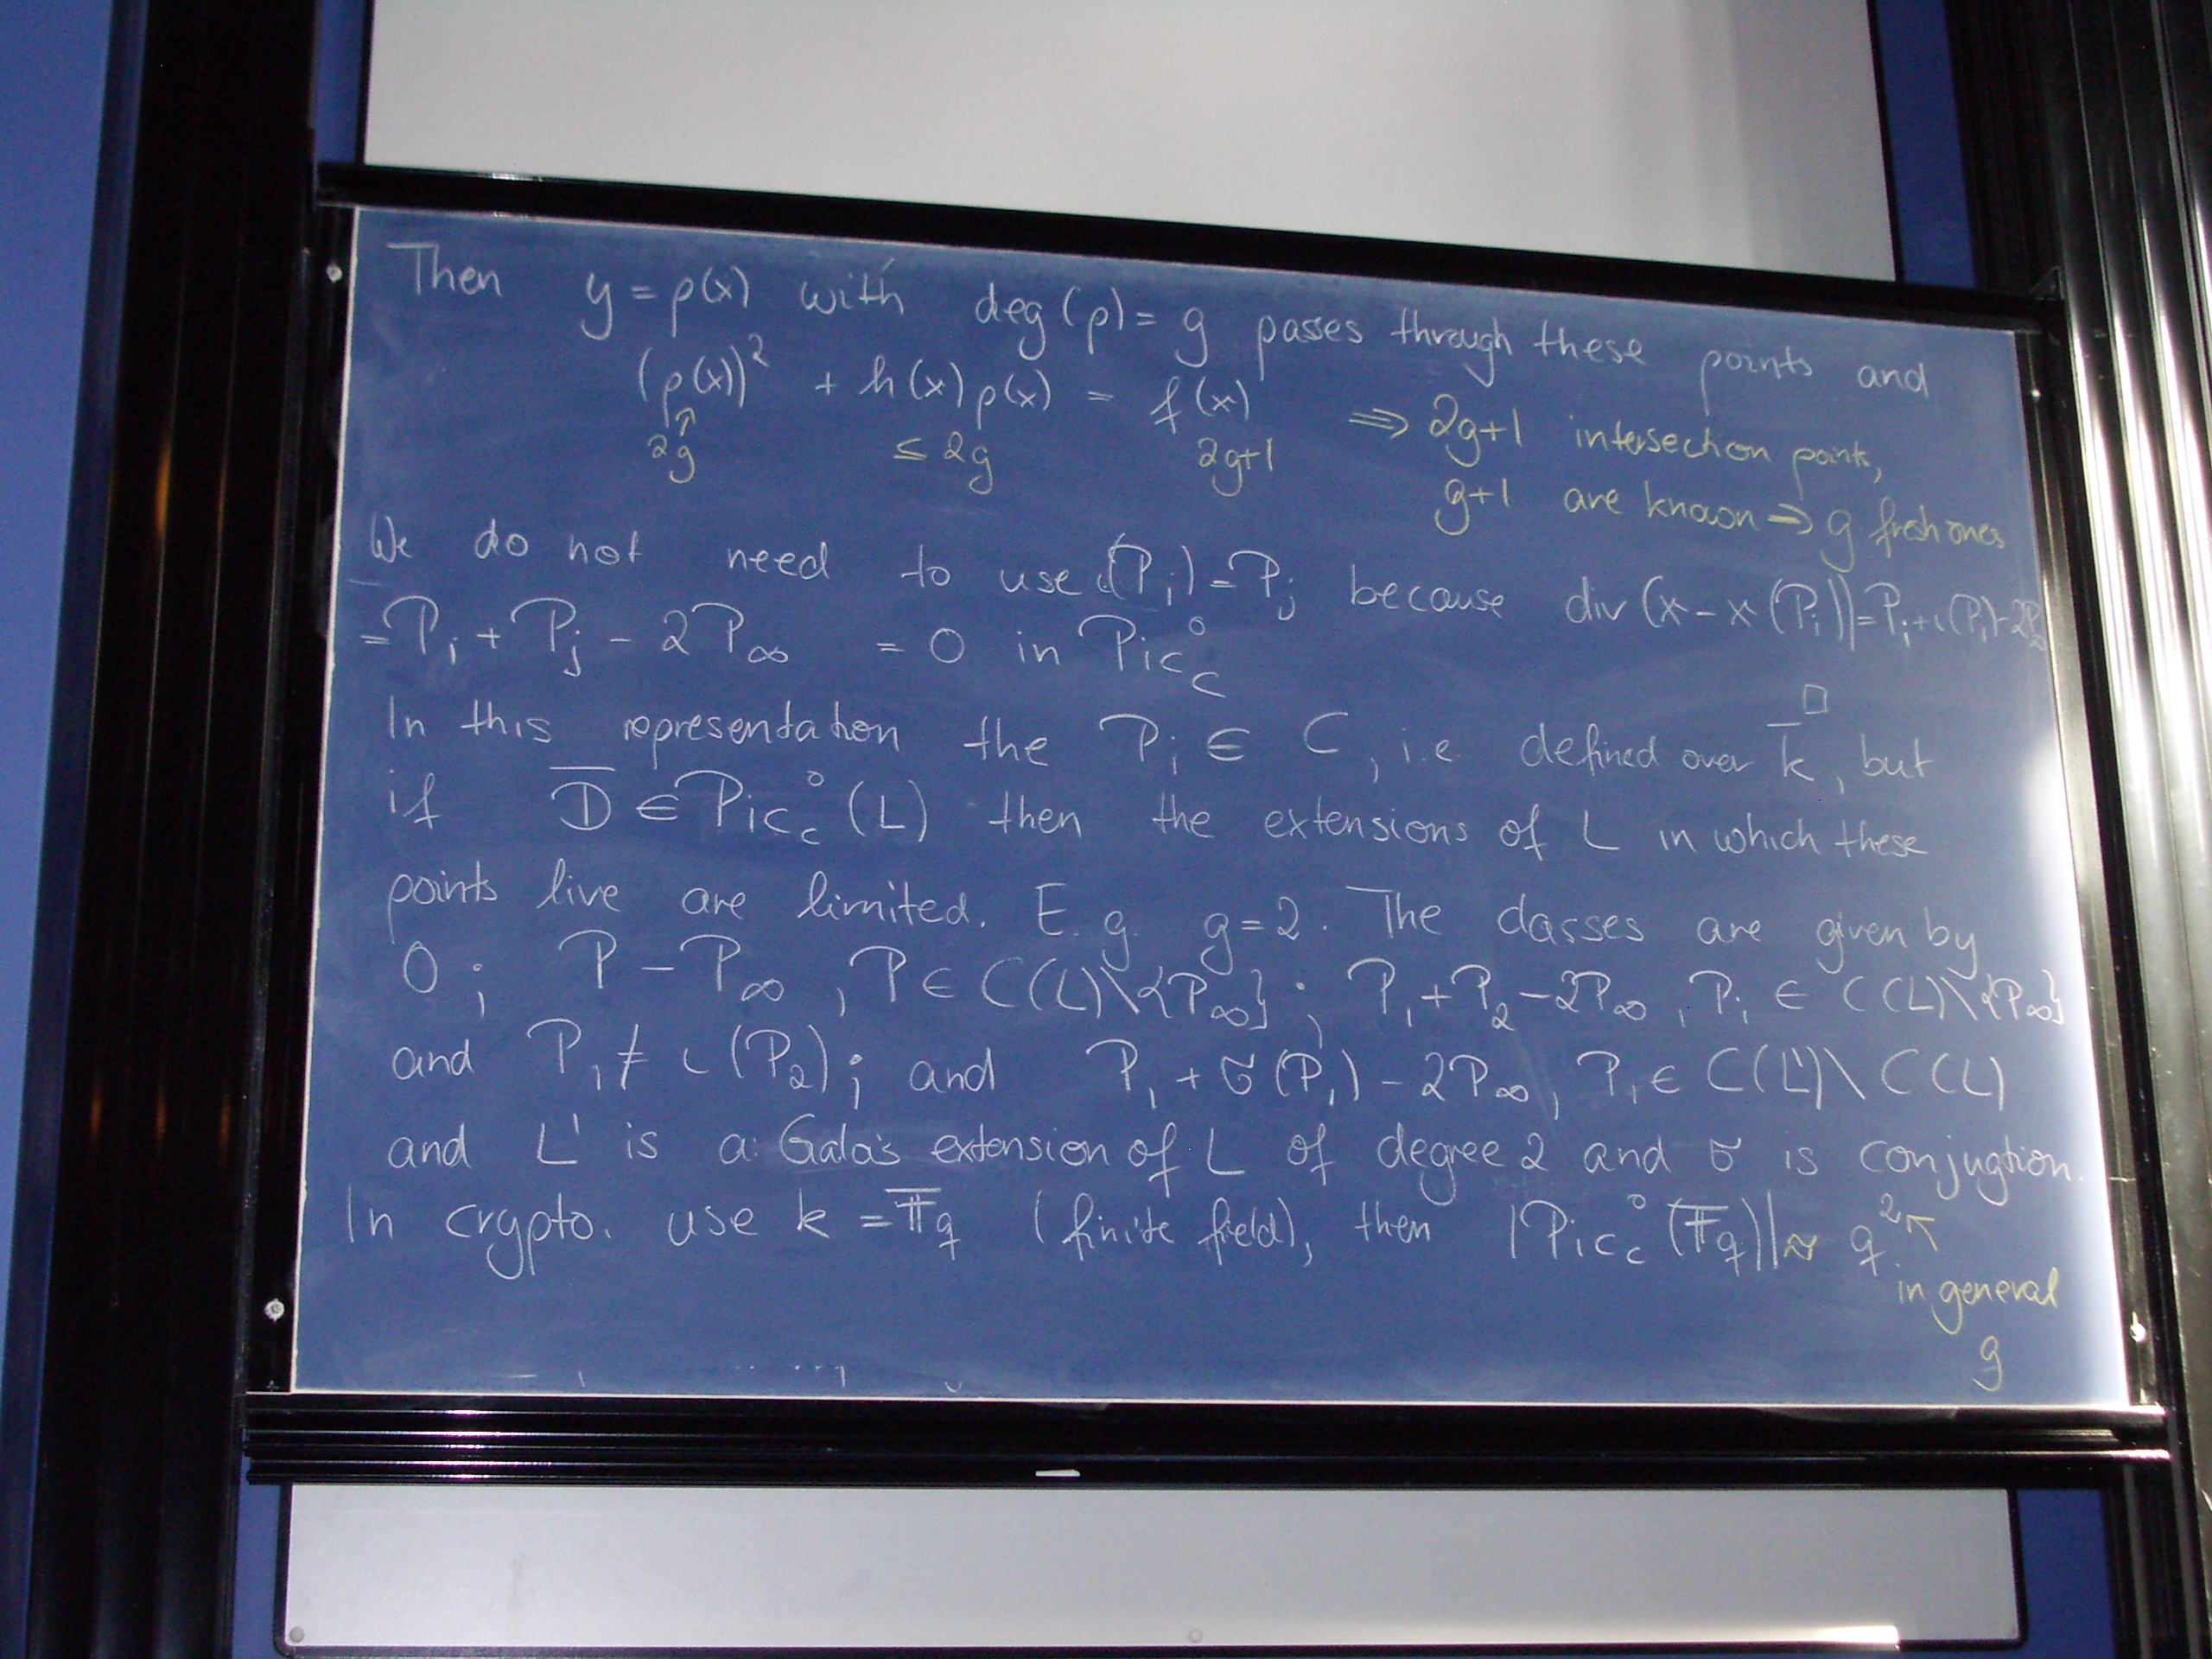 Then y = p(x) with deg(p) = g passes through these points and
(p(x))² + h(x) p(x) = f(x) ⇒ 2g+1 intersection points,
↑
2g ≤ 2g 2g+1 g+1 are known ⇒ g fresh ones
We do not need to use ι(Pᵢ) = Pⱼ because div(x - x(Pᵢ)) = Pᵢ + ι(Pᵢ) - 2P
= Pᵢ + Pⱼ - 2P∞ = 0 in Pic⁰_C
□
In this representation the Pᵢ ∈ C, i.e. defined over k̄, but
if D̄ ∈ Pic⁰_C (L) then the extensions of L in which these
points live are limited. E.g. g=2. The classes are given by
0; P - P∞, P ∈ C(L)\{P∞}; P₁ + P₂ - 2P∞, Pᵢ ∈ C(L)\{P∞}
and P₁ ≠ ι(P₂); and P₁ + σ(P₁) - 2P∞, P₁ ∈ C(L')\C(L)
and L' is a Galois extension of L of degree 2 and σ is conjugtion.
In crypto. use k = 𝔽q (finite field), then |Pic⁰_C (𝔽q)| ≈ q² ↖
in general
g